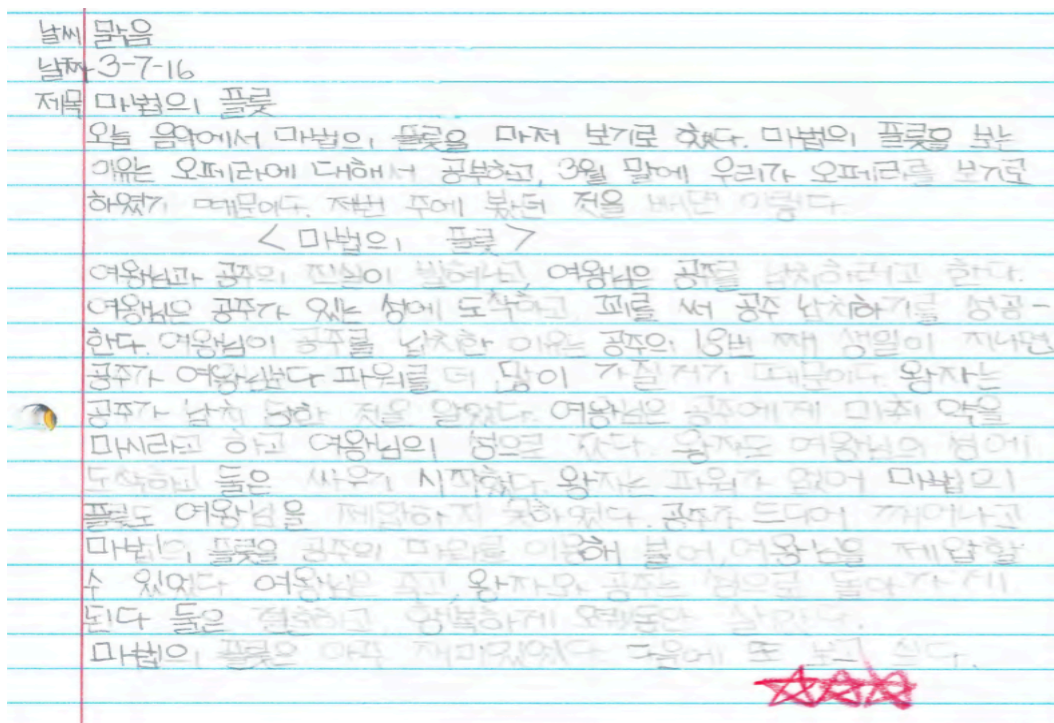 날씨 맑음
날짜 3-7-16
제목 마법의 플룻
오늘 음악에서 마법의 플룻을 마저 보기로 했다. 마법의 플룻을 보는
이유는 오페라에 대해서 공부하고, 3월 말에 우리가 오페라를 보기로
하였기 때문이다. 저번 주에 봤던 것을 이렇다
<마법의 플룻>
여왕님과 공주의 진실이 밝혀나고, 여왕님은 공주를 납치하려고 한다.
여왕님은 공주가 있는 성에 도착하고 꾀를 써 공주 납치하기를 성공-
한다. 여왕님이 공주를 납치한 이유는 공주의 18번 째 생일이 지나면
공주가 여왕님보다 파워를 더 많이 가질 거기 때문이다. 왕자는
공주가 납치 당한 것을 알았다. 여왕님은 공주에게 마취 약을
마시라고 하고 여왕님의 성으로 갔다. 왕자도 여왕님의 성에
도착하고 둘은 싸우기 시작했다. 왕자는 파워가 없어 마법의
플룻도 여왕님을 제압하지 못하였다. 공주가 드디어 깨어나고
마법의 플룻을 공주의 파워를 이용해 불어, 여왕님을 제압할
수 있었다 여왕님은 죽고, 왕자와 공주는 성으로 돌아가게
된다 둘은 결혼하고, 행복하게 오랫동안 살았다.
마법의 플룻은 아주 재미있었다 다음에 또 보고 싶다.